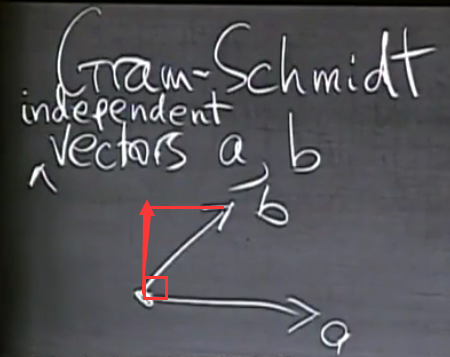 Gram-Schmidt
independent
^ vectors a, b
b
a